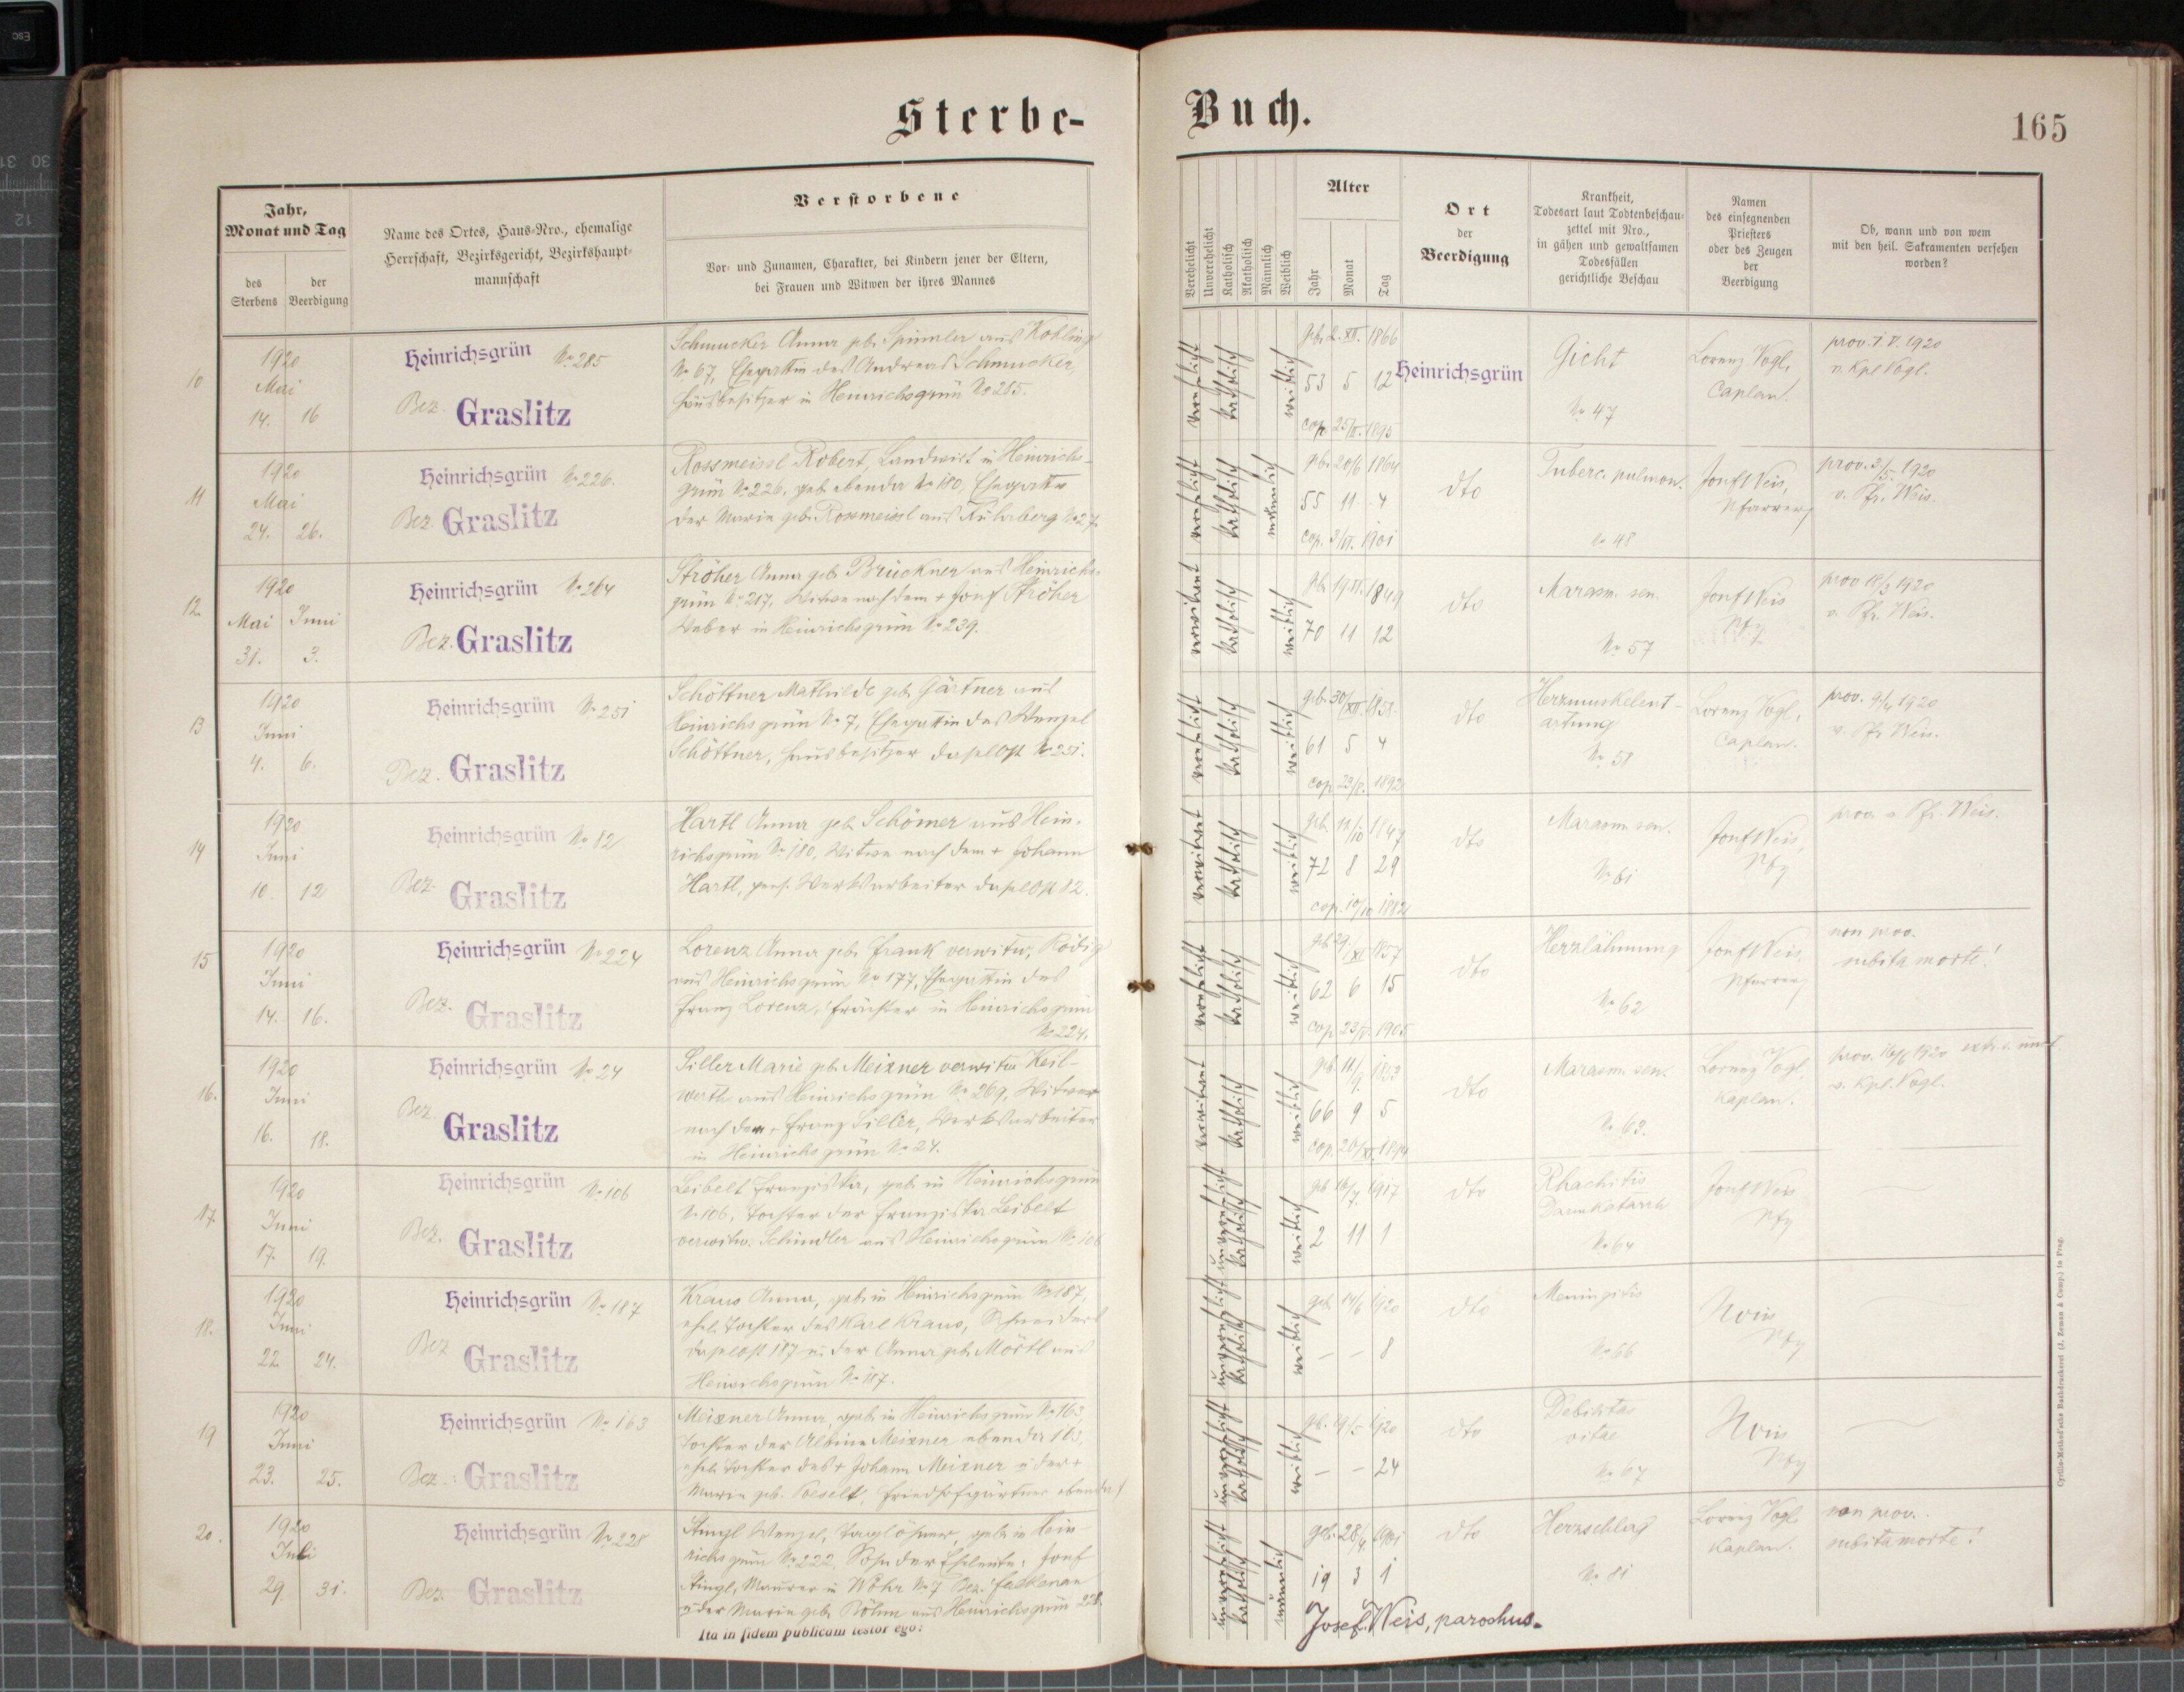 Sterbe-
Buch.
165
Jahr,
Monat und Tag
des
Sterbens
der
Beerdigung
Name des Ortes, Haus-Nro., ehemalige
Herrschaft, Bezirksgericht, Bezirkshaupt-
mannschaft
Verstorbene
Vor- und Zunamen, Charakter, bei Kindern jener der Eltern,
bei Frauen und Witwen der ihres Mannes
Verehelicht
Unverehelicht
Katholisch
Akatholisch
Männlich
Weiblich
Alter
Jahr
Monat
Tag
Ort
der
Beerdigung
Krankheit,
Todesart laut Todtenbeschau-
zettel mit Nro.,
in gähen und gewaltsamen
Todesfällen
gerichtliche Beschau
Namen
des einsegnenden
Priesters
oder des Zeugen
der
Beerdigung
Ob, wann und von wem
mit den heil. Sakramenten versehen
worden?
10
1920
Mai
14. 16
Heinrichsgrün No 285
Bez. Graslitz
Schmucker Anna geb. Spinnler aus Kobling
No 67, Ehegattin des Andreas Schmucker,
Hausbesitzer in Heinrichsgrün No 285.
verehelicht
katholisch
weiblich
geb. 2. XII. 1866
53 5 12
cop. 25/II. 1895
Heinrichsgrün
Gicht
No 47
Lorenz Vogl,
Caplan.
prov. 1. V. 1920
v. Kpl. Vogl.
11
1920
Mai
24. 26.
Heinrichsgrün No 226.
Bez. Graslitz
Rossmeissl Robert, Landwirt in Heinrichs-
grün No 226, geb. ebenda No 180, Ehegatte
der Marie geb. Rossmeissl aus No 27.
verehelicht
katholisch
männlich
geb. 20/6 1864
55 11 4
cop. 3/VI. 1901
dto
Tuberc. pulmon.
No 48
Josef Weis,
Pfarrer
prov. 3/5. 1920
v. Pfr. Weis.
12
1920
Mai Juni
31. 3.
Heinrichsgrün No 264
Bez. Graslitz
Ströher Anna geb. Brückner aus Heinrichs-
grün No 217, Witwe nach dem + Josef Ströher
Weber in Heinrichsgrün No 239.
verwitwet
katholisch
weiblich
geb. 19. VI. 1849
70 11 12
dto
Marasm. sen.
No 57
Josef Weis
Pfr
prov 18/3 1920
v. Pfr. Weis.
13
1920
Juni
4. 6.
Heinrichsgrün No 251
Bez. Graslitz
Schöttner Mathilde geb. Gärtner aus
Heinrichsgrün No 7, Ehegattin des Wenzel
Schöttner, Hausbesitzer daselbst No 251.
verehelicht
katholisch
weiblich
geb. 30/XII. 1858.
61 5 4
cop. 1892
dto
Herzmuskelent-
artung
No 58
Lorenz Vogl,
Caplan.
prov. 1920
v. Pfr Weis.
14
1920
Juni
10. 12
Heinrichsgrün No 82
Bez. Graslitz
Hartl Anna geb. Schömer aus Hein-
richsgrün No 180, Witwe nach dem + Johann
Hartl, pens. Werksarbeiter daselbst 82.
verwitwet
katholisch
weiblich
geb. 1847
72 8 29
cop. 10/10 1882
dto
Marasm. sen.
No 61
Josef Weis,
Pfr
prov. v Pfr. Weis.
15
1920
Juni
14. 16.
Heinrichsgrün No 224
Bez. Graslitz
Lorenz Anna geb. Frank verwitw. Rödig
aus Heinrichsgrün No 177, Ehegattin des
Franz Lorenz, Frächter in Heinrichsgrün
No 224.
verehelicht
katholisch
weiblich
geb 29./XI 1857
62 6 15
cop. 1905
dto
Herzlähmung
No 62
Josef Weis,
Pfarrer
non prov.
subita morte!
16.
1920
Juni
16. 18.
Heinrichsgrün No 24
Bez. Graslitz
Siller Marie geb. Meixner verwitw. Keil-
werth aus Heinrichsgrün No 269, Witwe
nach dem + Franz Siller, Werksarbeiter
in Heinrichsgrün No 24.
verwitwet
katholisch
weiblich
geb. 11/9. 1853
66 9 5
cop. 20/XI. 1894
dto
Marasm. sen.
No 63.
Lorenz Vogl,
Kaplan.
prov. 16/6 1920
v. Kpl. Vogl.
17
1920
Juni
17. 19.
Heinrichsgrün No 106
Bez. Graslitz
Leibelt Franziska, geb. in Heinrichsgrün
No 106, Tochter der Franziska Leibelt
verwitw. Schindler aus Heinrichsgrün No 106
unverehelicht
katholisch
weiblich
geb 16/7. 1917
2 11 1
dto
Rhachitis
Darmkatarrh
No 64
Josef Weis
Pfr
18.
1920
Juni
22 24.
Heinrichsgrün No 187
Bez Graslitz
Kraus Anna, geb. in Heinrichsgrün No 187,
ehel. Tochter des Karl Kraus, Schneiders
daselbst 187 u. der Anna geb. Mörtl aus
Heinrichsgrün No 187.
unverehelicht
katholisch
weiblich
geb. 14/6 1920
— — 8
dto
Meningitis
No 66
Weis
Pfr
19
1920
Juni
23. 25.
Heinrichsgrün No 163
Bez.: Graslitz
Meixner Anna, geb. in Heinrichsgrün No 163,
Tochter der Albina Meixner ebenda 163,
ehel. Tochter des + Johann Meixner u. der +
Marie geb. Poeselt, Friedhofgärtner ebenda
unverehelicht
katholisch
weiblich
geb. 1920
— — 24
dto
Debilitas
vitae
No 67
Weis
Pfr
20.
1920
Juli
29. 31.
Heinrichsgrün No 228
Bez. Graslitz
Stingl Wenzel, Taglöhner, geb. in Hein-
richsgrün No 222, Sohn der Eheleute: Josef
Stingl, Maurer in Wöhr No 7 Bez. Falkenau
u. der Marie geb. Böhm aus Heinrichsgrün 228.
unverehelicht
katholisch
männlich
geb. 28/4 1901
19 3 1
dto
Herzschlag
No 81
Lorenz Vogl
Kaplan.
non prov.
subita morte!
Ita in fidem publicam testor ego:
Josef Weis, parochus.
Cyrillo-Method'sche Buchdruckerei (J. Zeman & Comp.) in Prag.
Esc